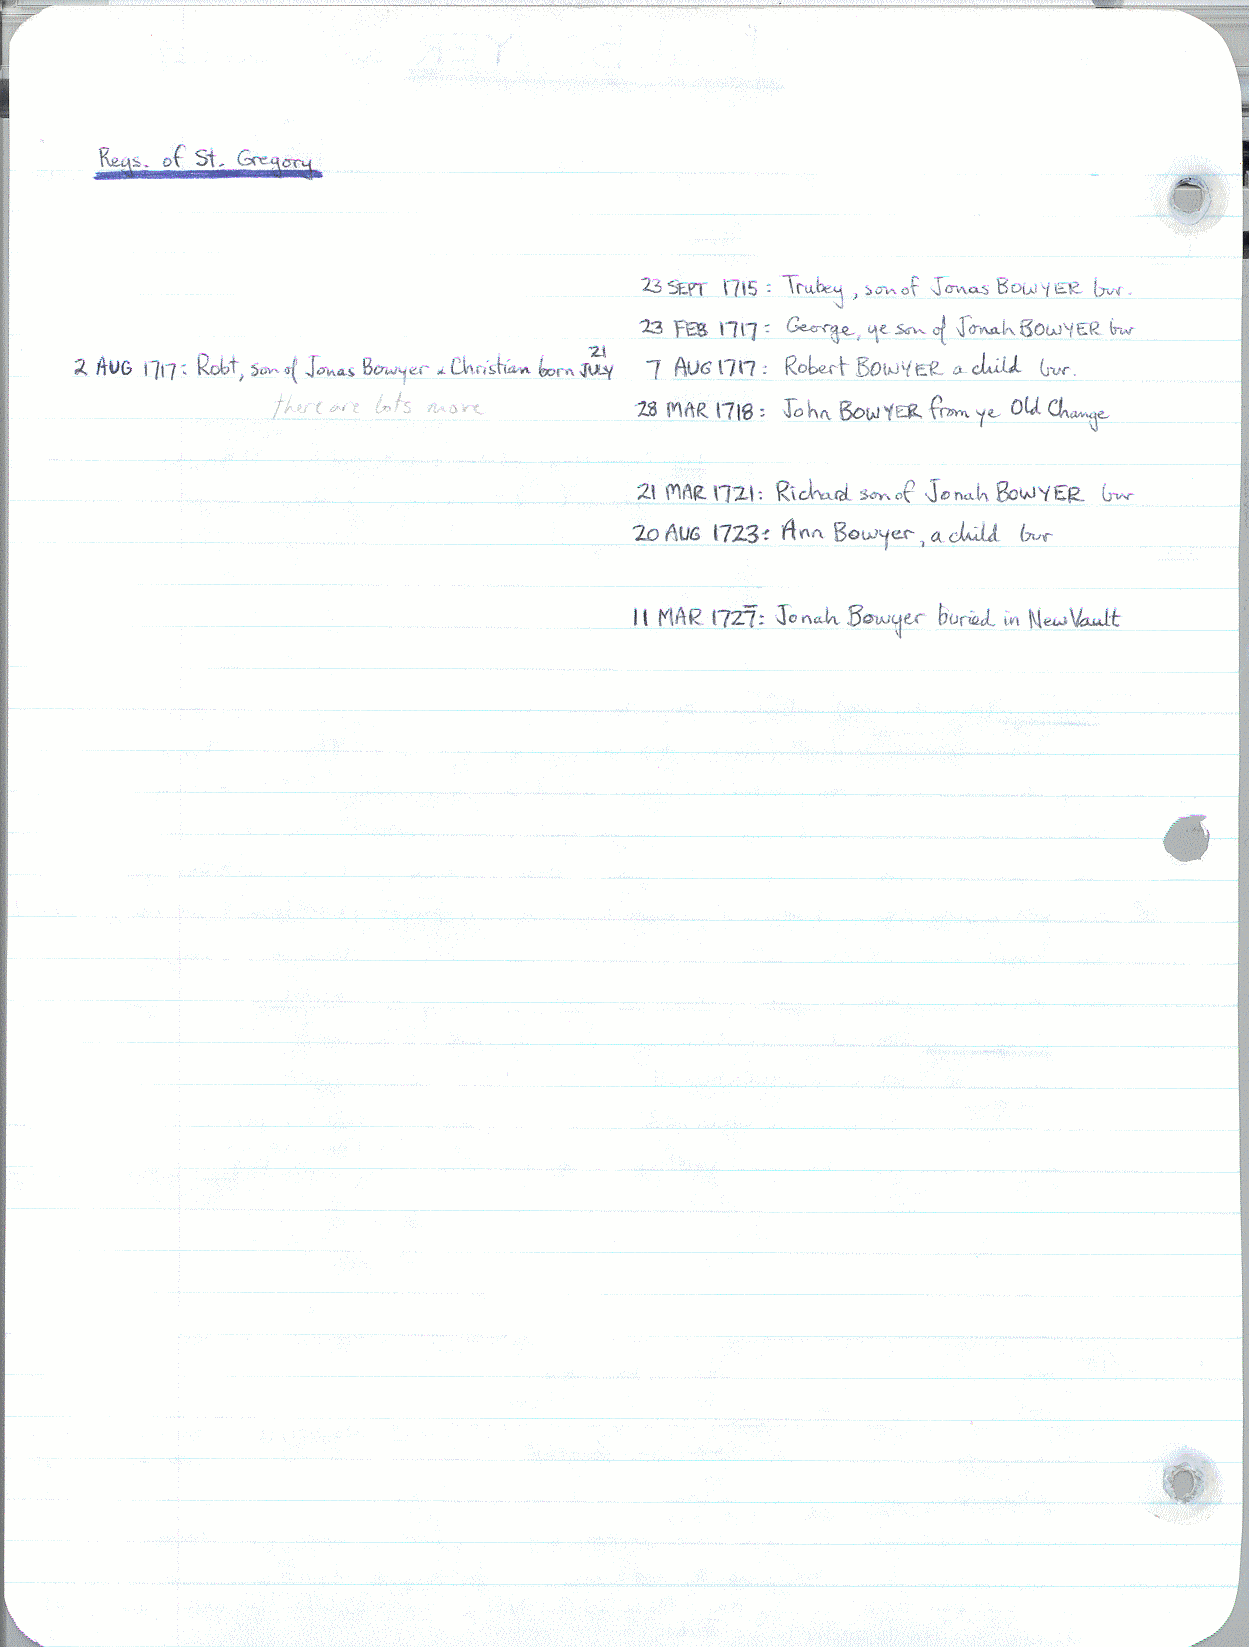 Regs. of St. Gregory
23 SEPT 1715: Trubey, son of Jonas BOWYER bur.
23 FEB 1717: George, ye son of Jonah BOWYER bur
2 AUG 1717: Robt, son of Jonas Bowyer & Christian born 21 JULY
7 AUG 1717: Robert BOWYER a child bur.
there are lots more
28 MAR 1718: John BOWYER from ye Old Change
21 MAR 1721: Richard son of Jonah BOWYER bur
20 AUG 1723: Ann Bowyer, a child bur
11 MAR 1727: Jonah Bowyer buried in New Vault